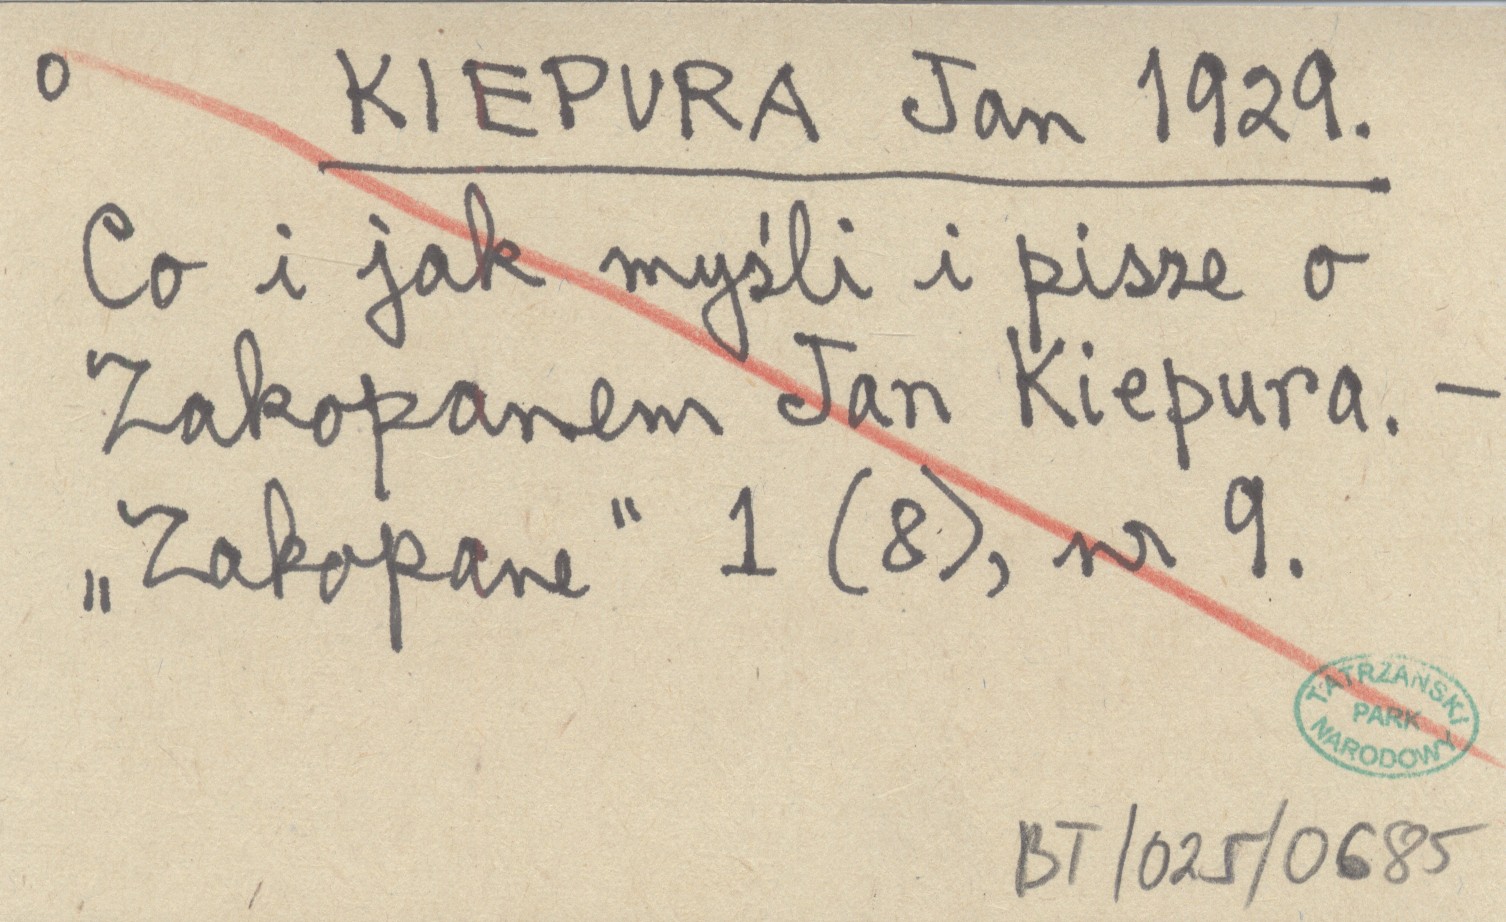 o KIEPURA Jan 1929.
Co i jak myśli i pisze o
Zakopanem Jan Kiepura. —
„Zakopane" 1 (8), nr 9.
TATRZAŃSKI
PARK
NARODOWY
BT/025/0685